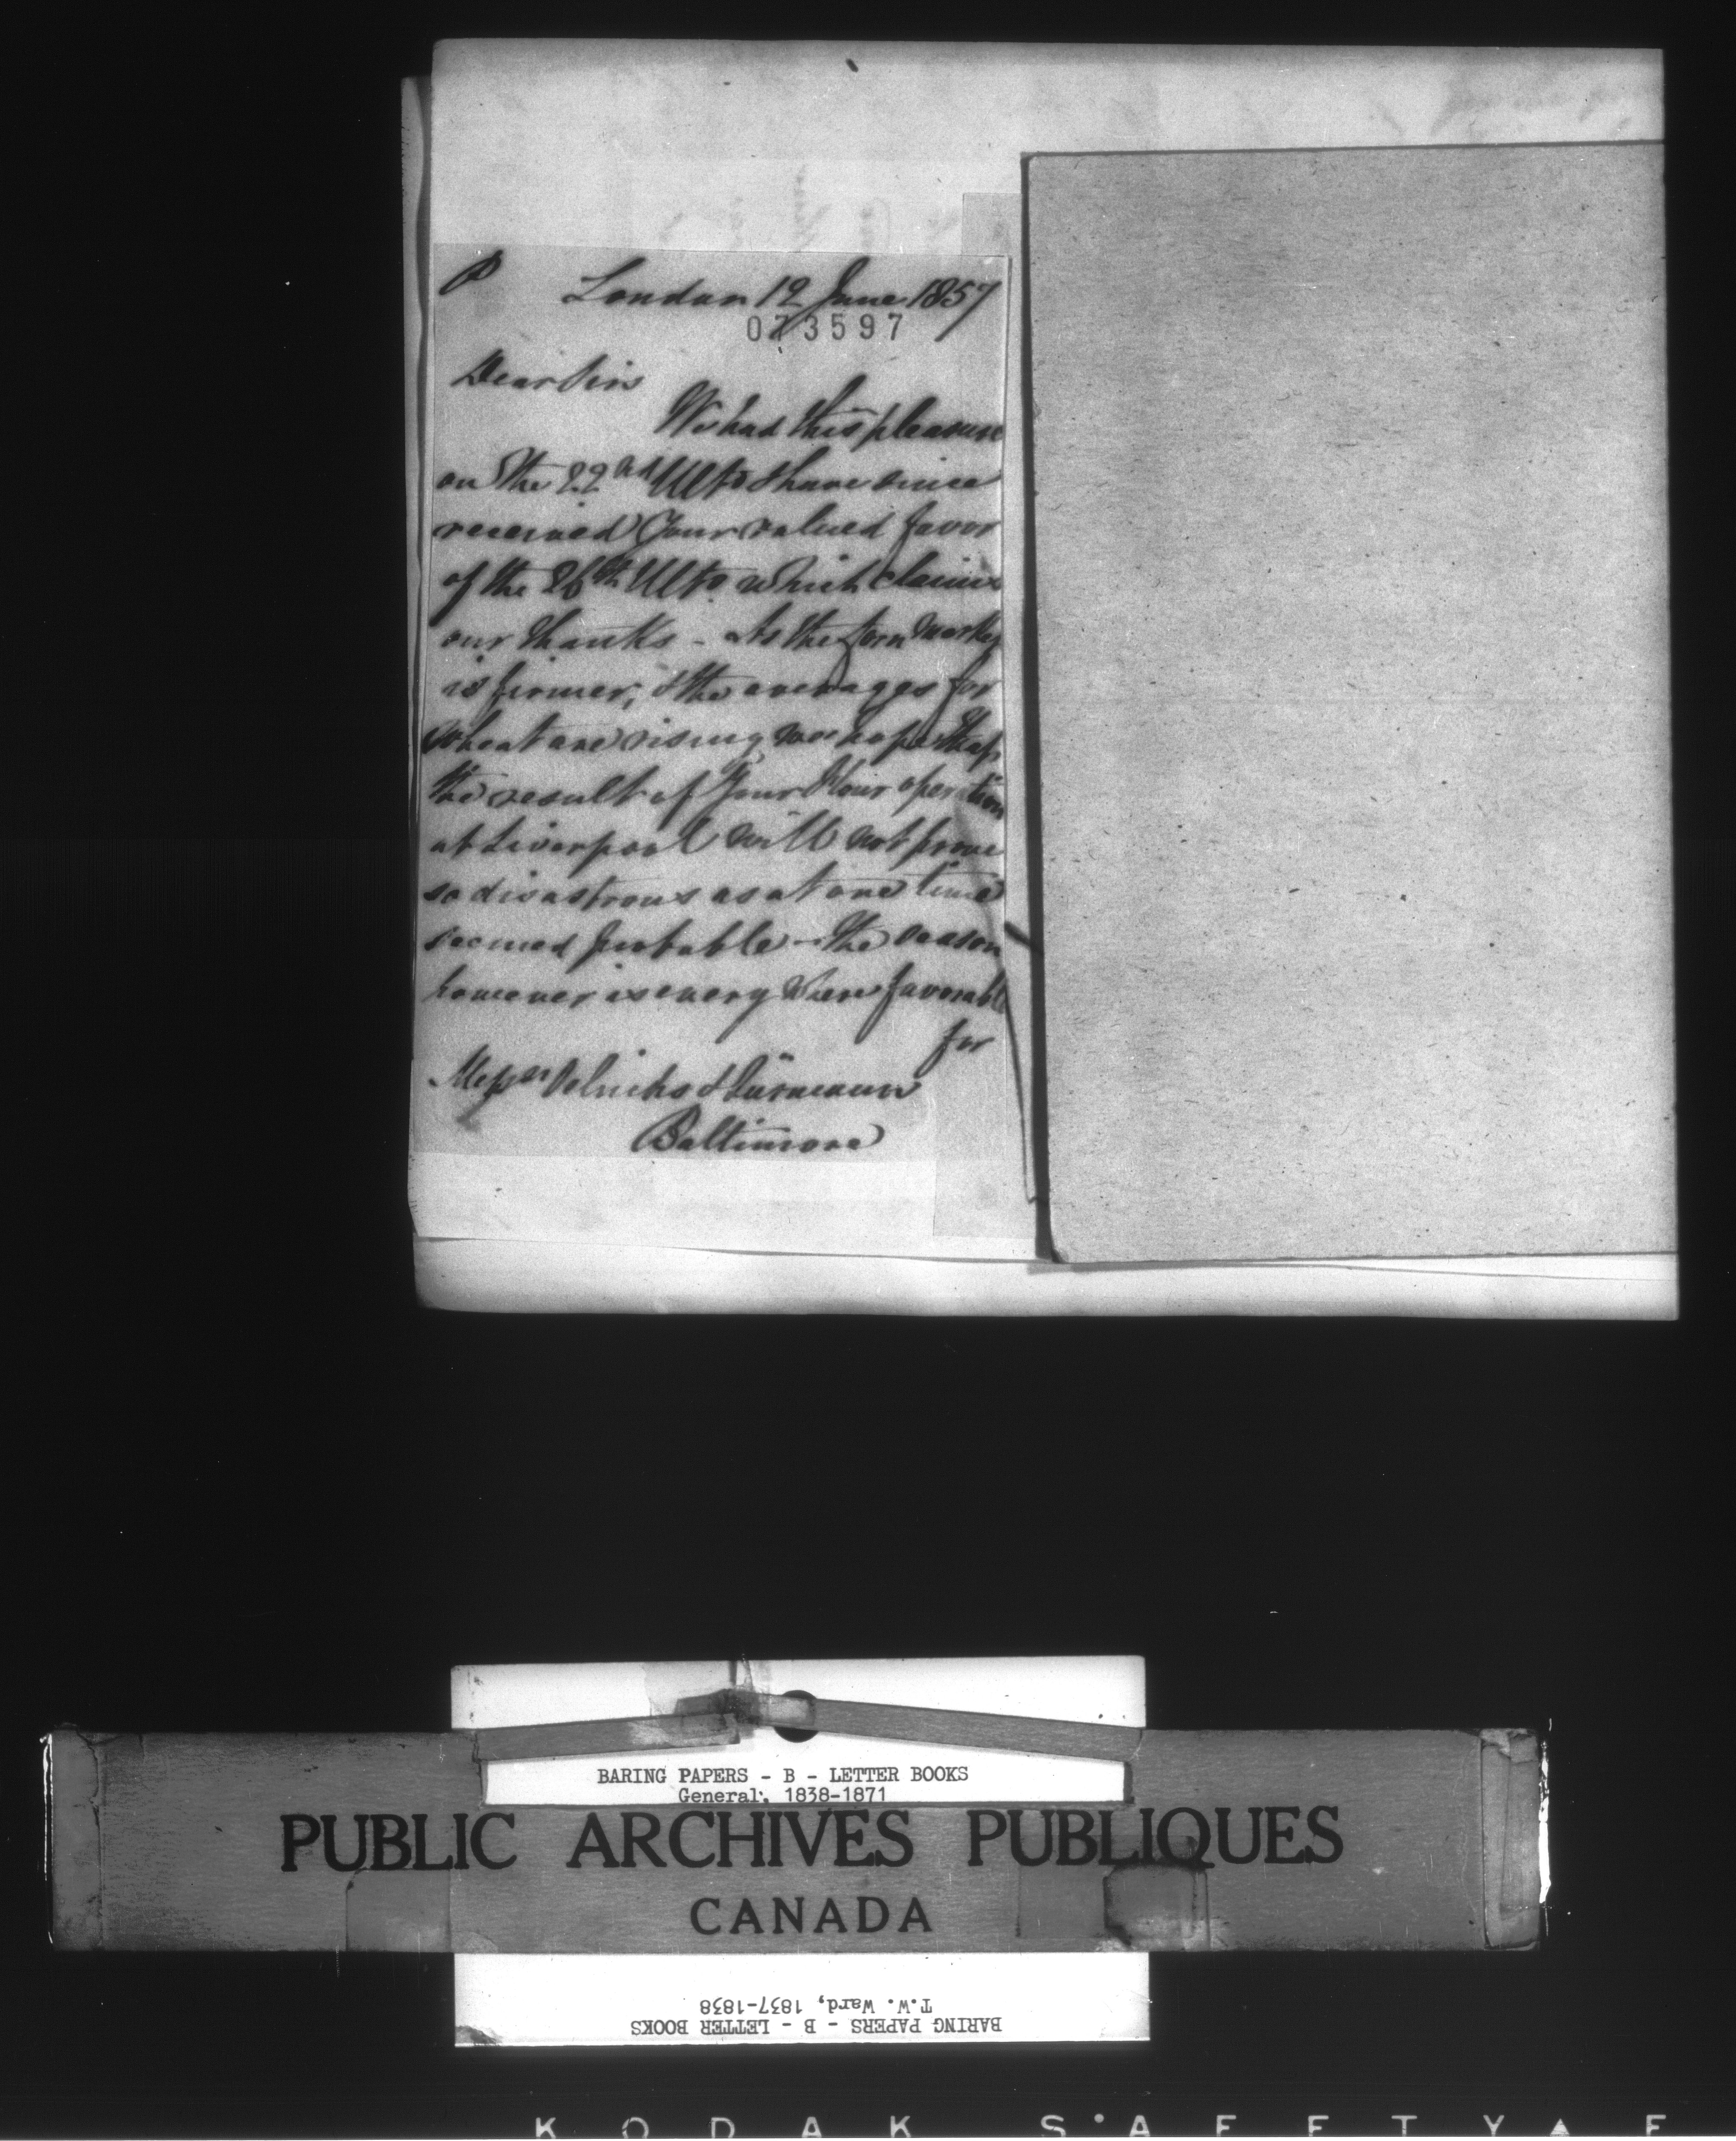 P London 12 June 1857
073597
Dear Sirs
We had this pleasure
on the 22nd Ulto & have since
received Your valued favor
of the 26th Ulto which claims
our thanks - As the Corn Market
is firmer, & the averages for
Wheat are rising we hope that
the result of Your Flour operation
at Liverpool will not prove
so disastrous as at one time
seemed probable - The season
however is every where favorable
for
Messrs Oelrichs & Lürman
Baltimore
BARING PAPERS - B - LETTER BOOKS
General, 1838-1871
PUBLIC ARCHIVES PUBLIQUES
CANADA
BARING PAPERS - B - LETTER BOOKS
T.W. Ward, 1837-1838
KODAK S'AFETY▲F